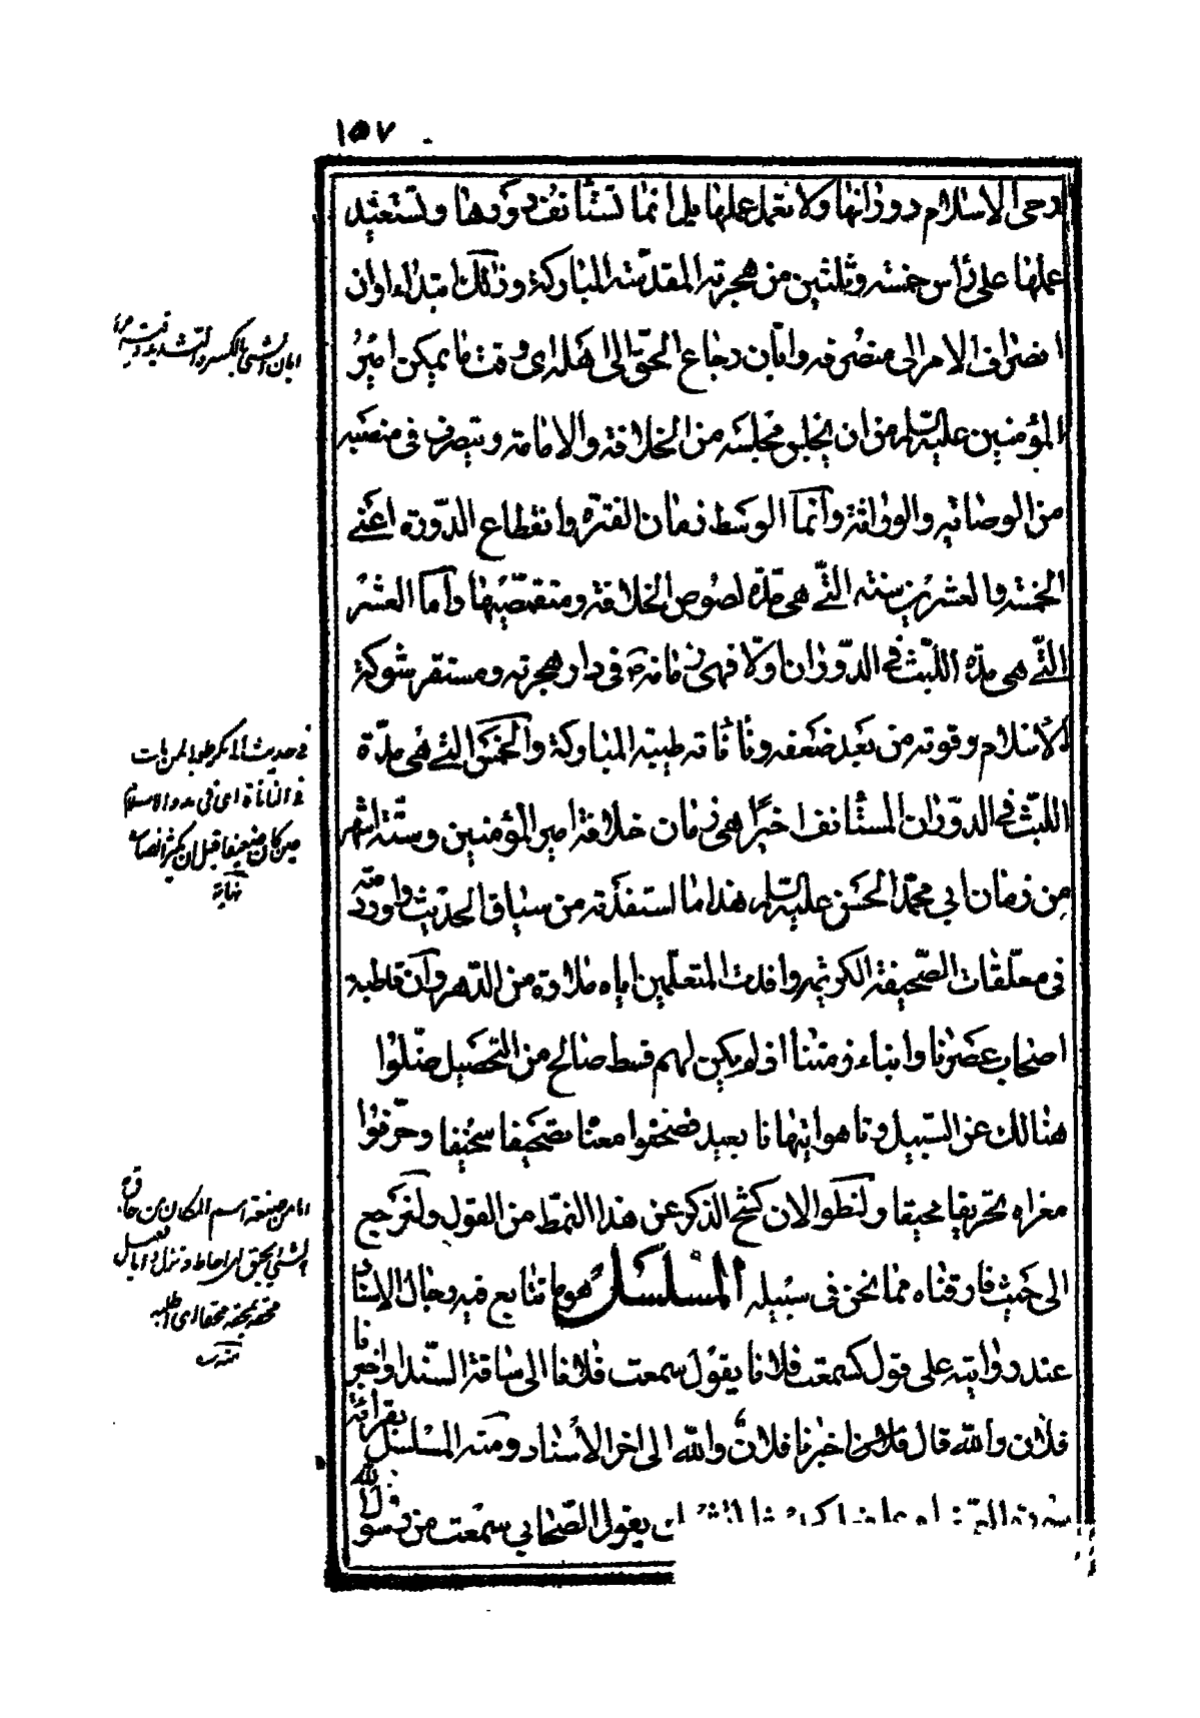 ١٥٧
رحى الاسلام دورانها ولا تعمل عملها بل انما تستأنف دورها وتستعيد
عملها على رأس خمسة وثلثين من هجرته المقدسة المباركة وذلك ابتداء اوان
انصراف الامر الى منصرفه وابان رجاع الحق الى اهله اى وقت ما يمكن امير
المؤمنين عليه السلم من ان يجلس مجلسه من الخلافة والامامة ويتصرف فى منصبه
من الوصاية والوراثة وانما الوسط زمان الفترة وانقطاع الدورة اعنى
الخمسة والعشرين سنة التى هى مدة لصوص الخلافة ومتقمصيها واما العشر
التى هى مدة اللبث فى الدوران اولا فهى زمانه فى دار هجرته ومستقر شوكة
الاسلام وقوته من بعد ضعفه ونأنأته طيبة المباركة والخمس التى هى مدة
اللبث فى الدوران المستأنف اخيرا هى زمان خلافة امير المؤمنين وستة اشهر
من زمان ابي محمد الحسن عليه السلم هذا ما استفدته من سياق الحديث واوردته
فى معلقات الصحيفة الكريمة وافدت المتعلمين اياه ملاوة من الدهر وان قاطبة
اصحاب عصرنا وابناء زمننا اذ لم يكن لهم قسط صالح من التحصيل ضلوا
هنالك عن السبيل وتاهوا تيهانا بعيد فصحفوا معنا تصحيفا سخيفا وحرفوا
مغزاه تحريفا محيقا ولنطو الان كشح الذكر عن هذا النمط من القول ولنرجع
الى حيث فارقناه مما نحن فى سبيله المسلسل هو ما تتابع فيه رجال الاسناد
عند روايته على قول كسمعت فلانا يقول سمعت فلانا الى ساقة السند او اخبرنا
فلان والله قال فلان اخبرنا فلان والله الى اخر الاسناد ومنه المسلسل بقرائة
يقول الصحابي سمعت من رسول الله
ابان الشئ بالكسر والتشديد وقته
فى حديث ابى بكر طوبى لمن مات
فى النأنأة اى فى بدو الاسلام
حين كان ضعيفا قبل ان يكثر انصاره
نهاية
اما من صيغة اسم المكان من حاق به
الشئ يحيق اى احاط ونزل